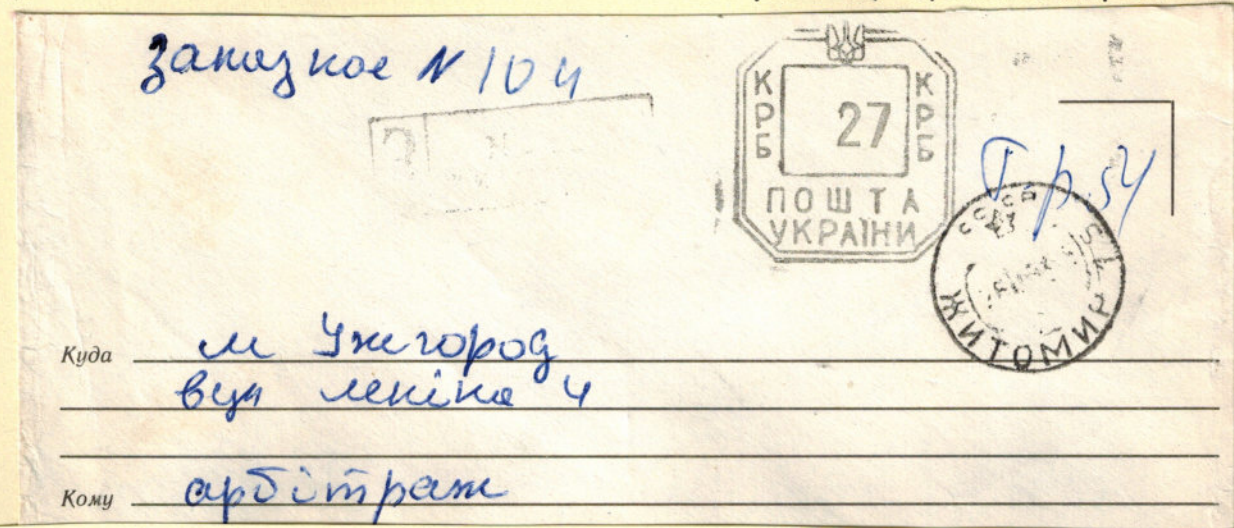 заказное N 104
КРБ 27 КРБ
ПОШТА
УКРАЇНИ
СССР
ЖИТОМИР
Куда м Ужгород
вул Леніна 4
Кому арбітраж